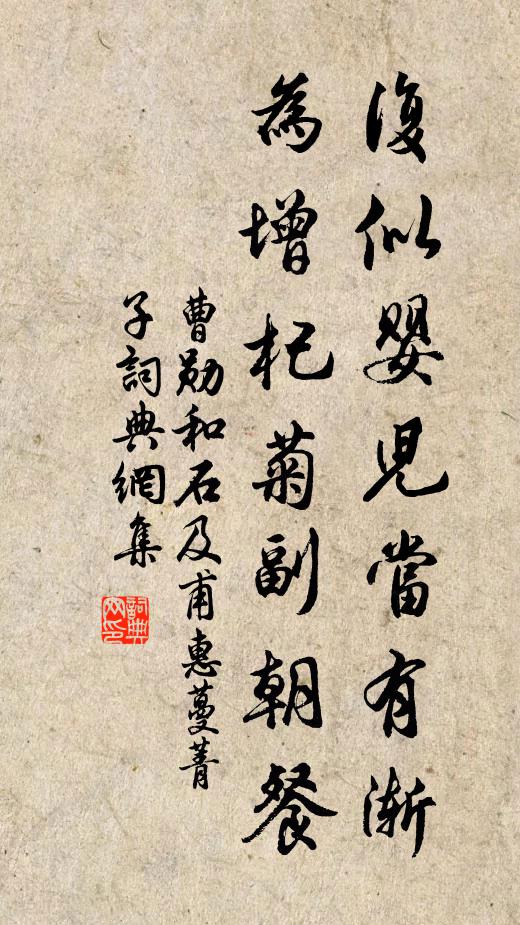 復似嬰兒當有漸
為增杞菊副朝餐
曹勛和石及甫惠蔓菁
子詞典網集
詞典網印